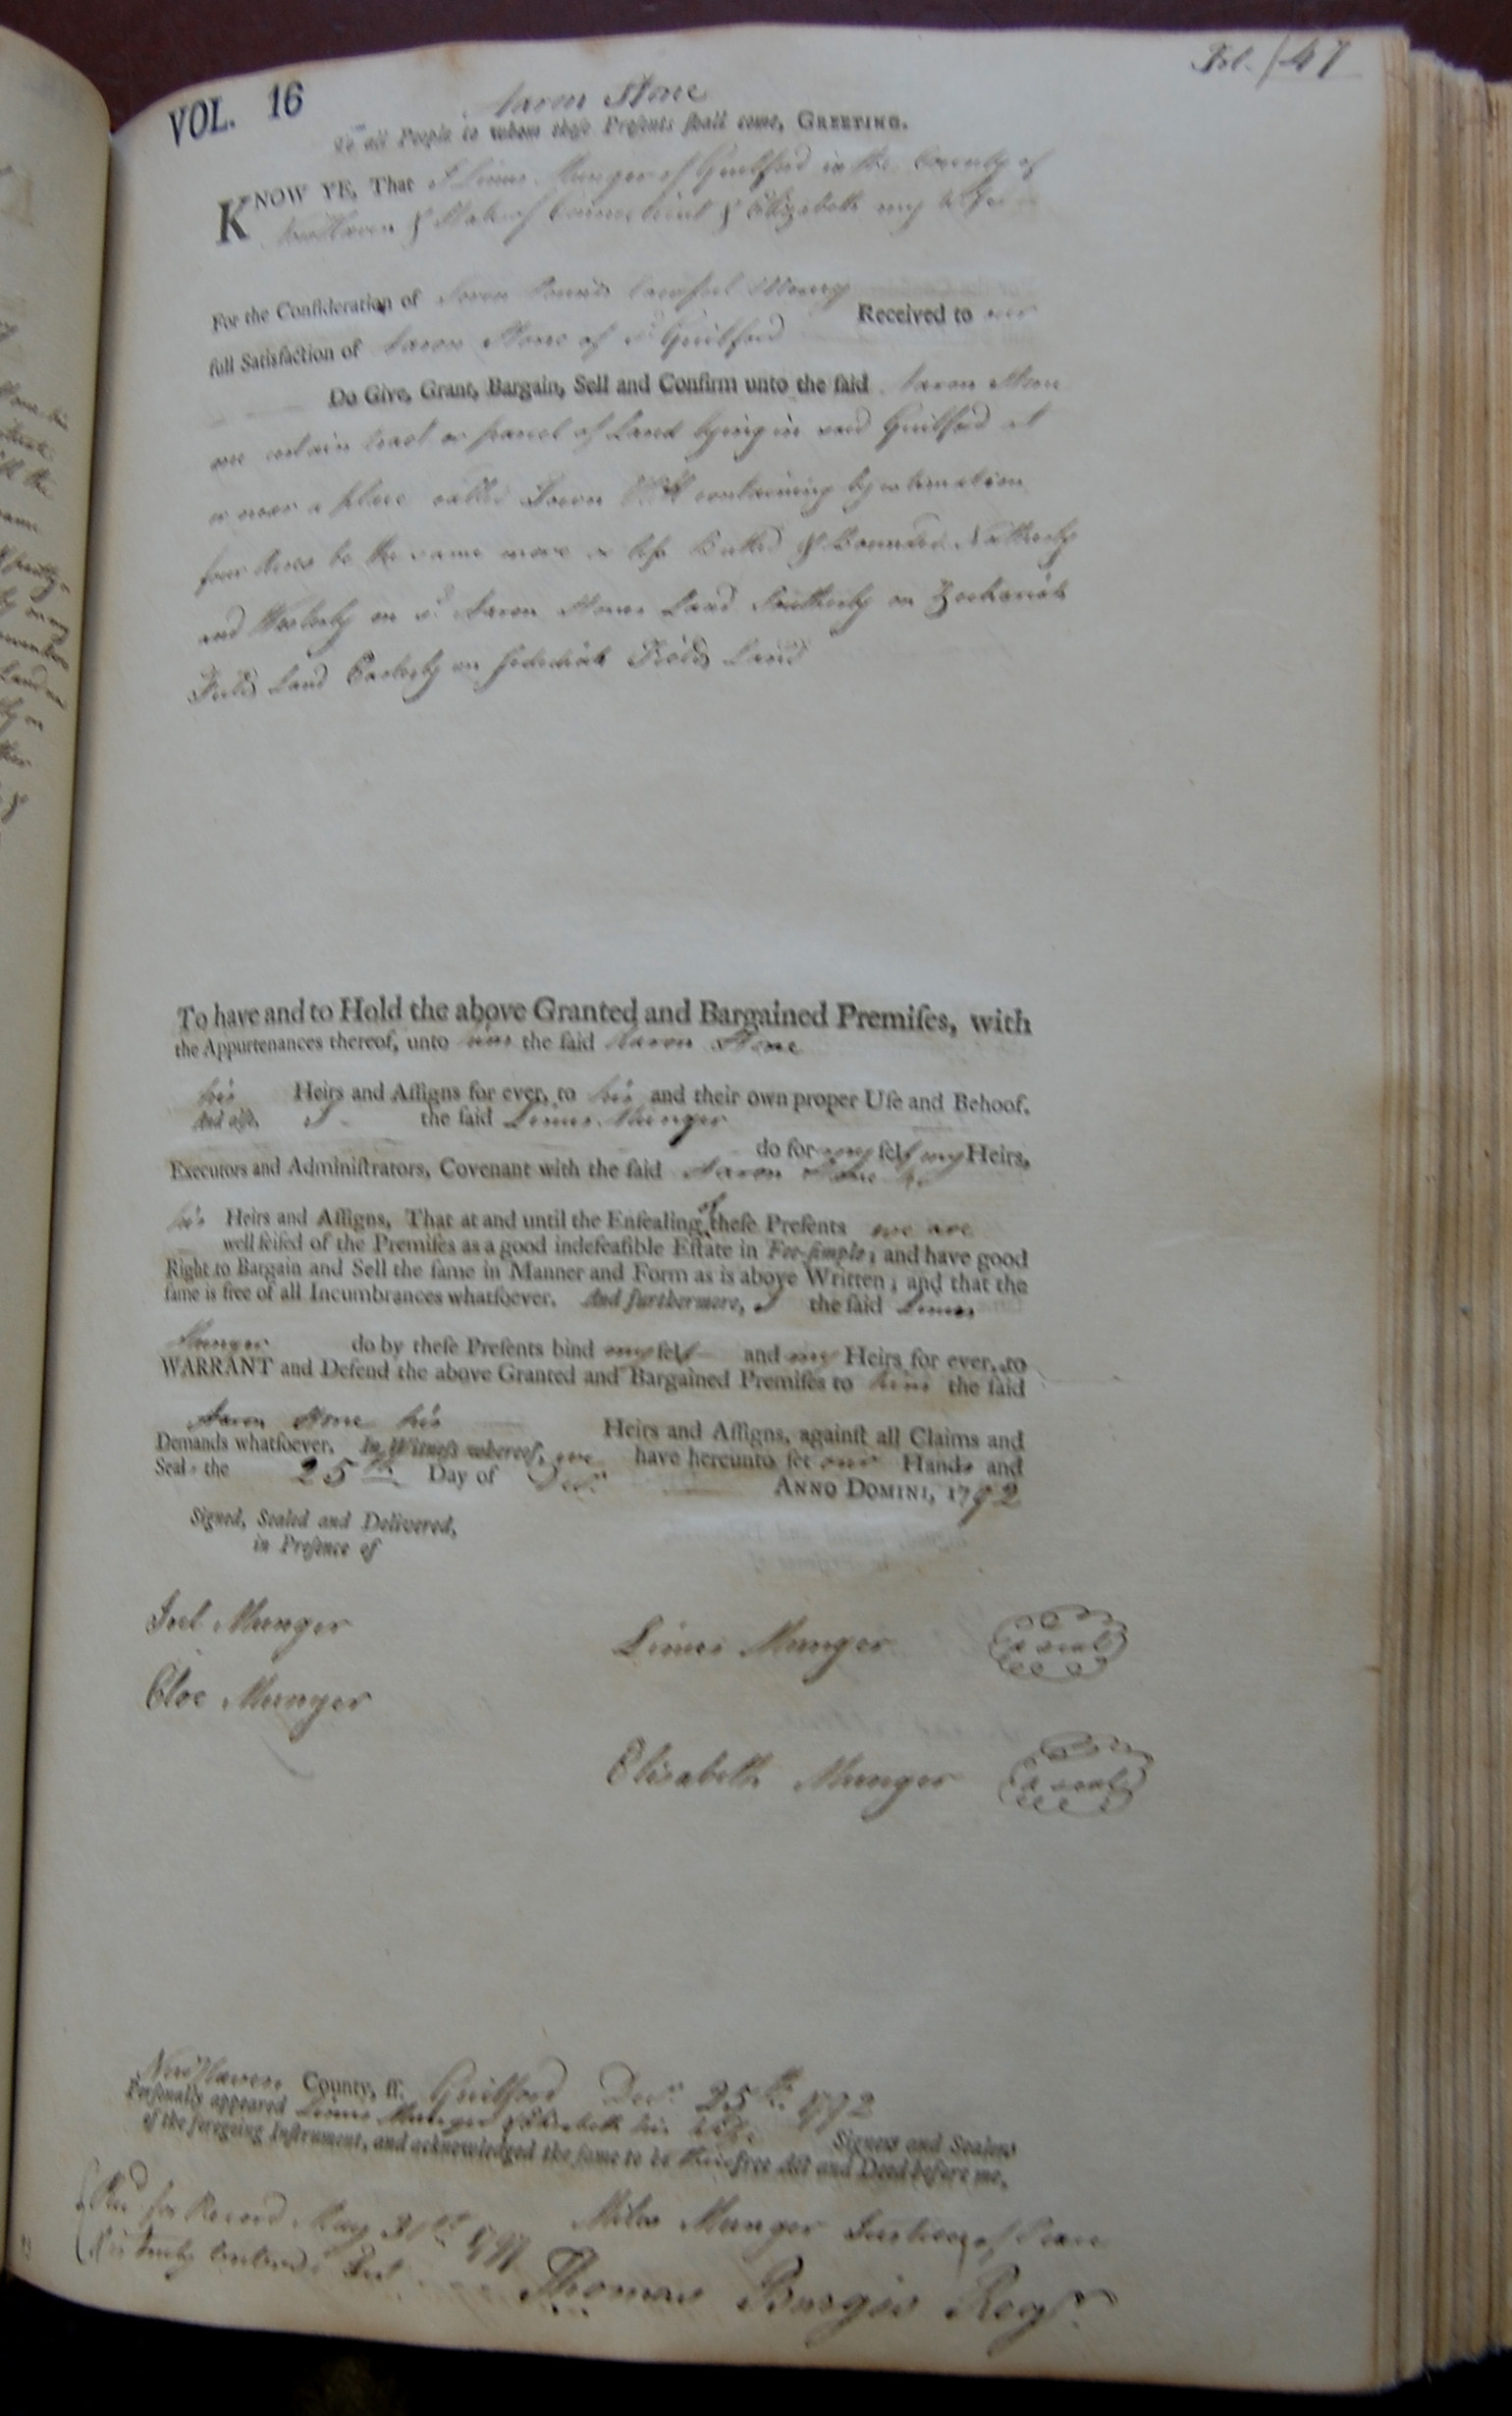 VOL. 16
Fol. 147
Aaron Stone
To all People to whom these Presents shall come, GREETING.
KNOW YE, That I Linus Munger of Guilford in the County of
New Haven & State of Connecticut & Elizabeth my Wife
For the Consideration of Seven Pounds Lawful Money
Received to our
full Satisfaction of Aaron Stone of sd. Guilford
Do Give, Grant, Bargain, Sell and Confirm unto the said Aaron Stone
one certain tract or parcel of Land lying in said Guilford at
or near a place called containing by estimation
four Acres be the same more or less Butted & Bounded Northerly
and Westerly on sd. Aaron Stones Land Southerly on Zechariah
Fields Land Easterly on Jedediah Fields Land
To have and to Hold the above Granted and Bargained Premises, with
the Appurtenances thereof, unto him the said Aaron Stone
his Heirs and Assigns for ever, to his and their own proper Use and Behoof.
And also, I the said Linus Munger
do for my self my Heirs,
Executors and Administrators, Covenant with the said Aaron Stone
his Heirs and Assigns, That at and until the Ensealing of these Presents we are
well seised of the Premises as a good indefeasible Estate in Fee-simple; and have good
Right to Bargain and Sell the same in Manner and Form as is above Written; and that the
same is free of all Incumbrances whatsoever. And furthermore, I the said Linus
Munger do by these Presents bind my self and my Heirs for ever, to
WARRANT and Defend the above Granted and Bargained Premises to him the said
Aaron Stone his Heirs and Assigns, against all Claims and
Demands whatsoever. In Witness whereof, we have hereunto set our Hands and
Seals the 25th Day of Decr. ANNO DOMINI, 1792
Signed, Sealed and Delivered,
in Presence of
Joel Munger
Linus Munger a seal
Cloe Munger
Elisabeth Munger a seal
New Haven County, ss. Guilford Decr. 25th 1792
Personally appeared Linus Munger & Elisabeth his Wife Signers and Sealers
of the foregoing Instrument, and acknowledged the same to be their free Act and Deed before me,
Miles Munger Justice of Peace
Recd. for Record May 31st 1797
& is truly Entered Per
Thomas Burgis Regr.